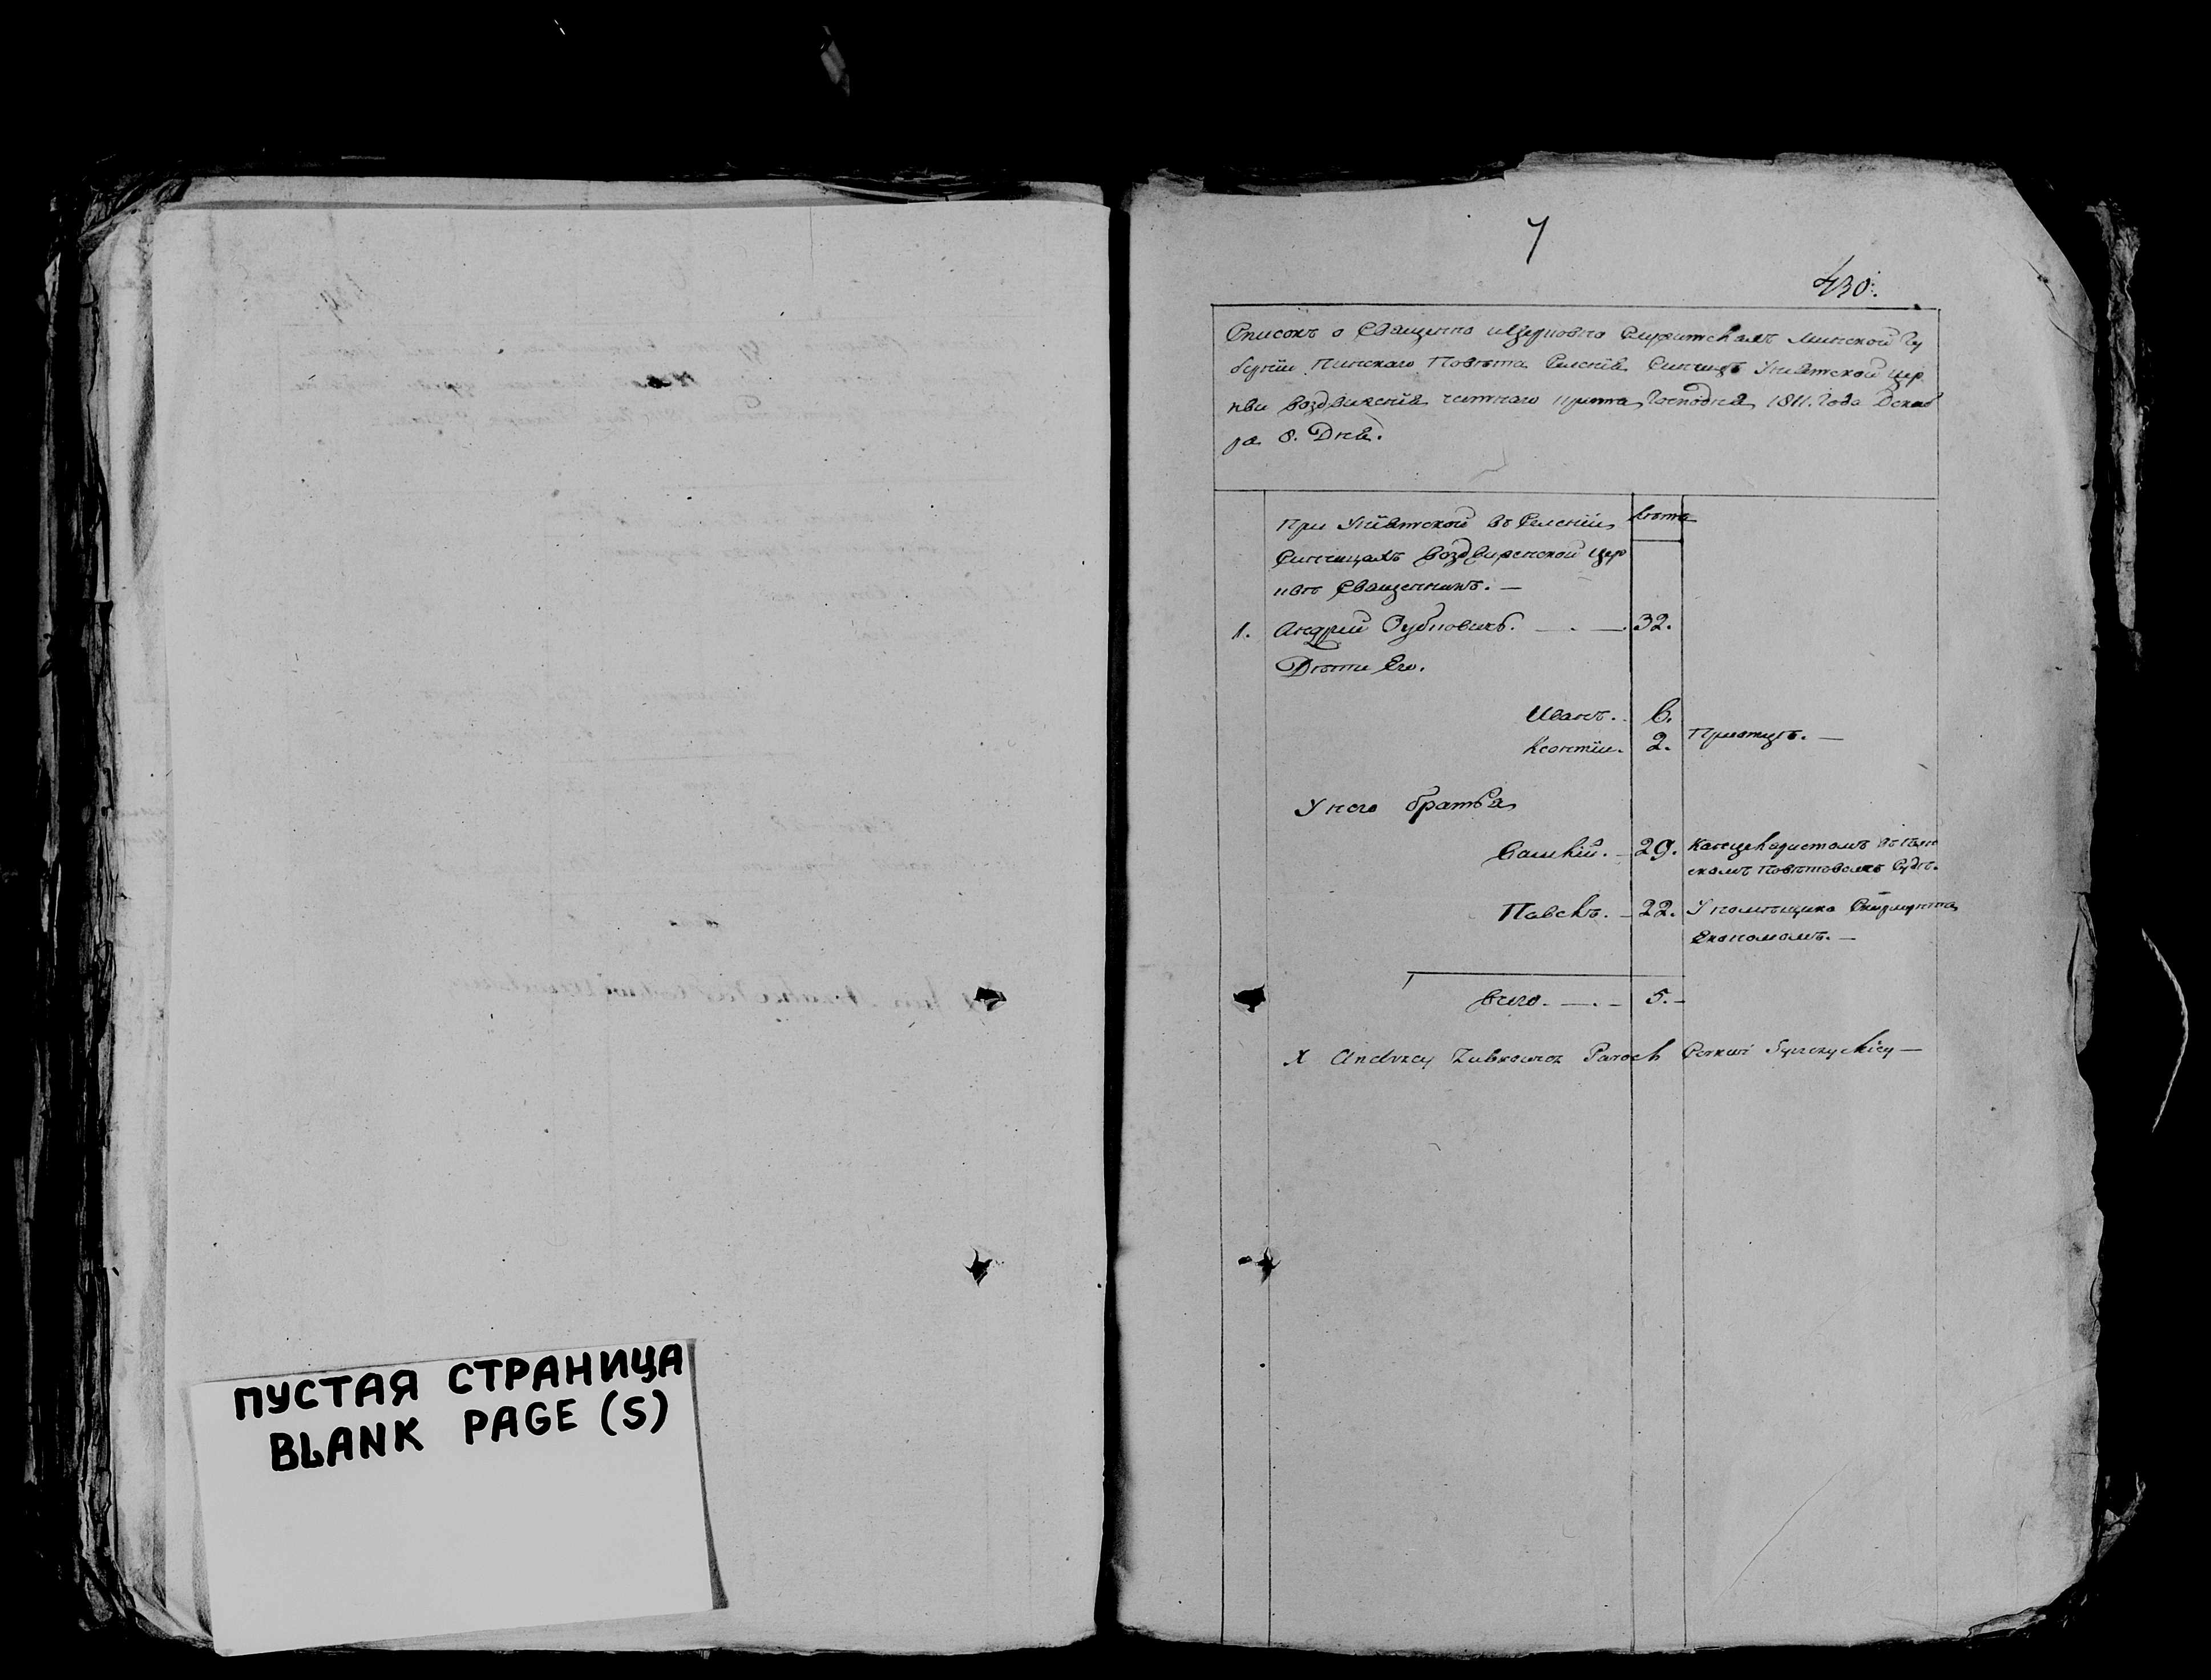 7
430.
Списокъ о Священно иЦерковно Служителяхъ Минской Гу
берніи Пинскаго Повѣта Селенія Синчицъ Уніятской Цер
кви Воздвиженія честнаго креста Господня 1811. Года Декаб
ря 8. Дня.
При Уніятской въ Селеніи Лѣта
Синчицахъ Воздвиженской Цер
квѣ Священникъ. —
1. Андрей Зубковичъ. — . — . 32.
Дѣти Его.
Иванъ. 6.
Леонтіи. 2. Приотцѣ. —
У него братья
Василій. — 29. Канцеляристомъ въ Пин
скомъ Повѣтовомъ Судѣ.
Павелъ. — 22. У помѣщика Скирмунта
Економомъ. —
всего. — . — 5. —
X Andrzey Zubkowicz Paroch Cerkwi Synczyckiey —
ПУСТАЯ СТРАНИЦА
BLANK PAGE (S)